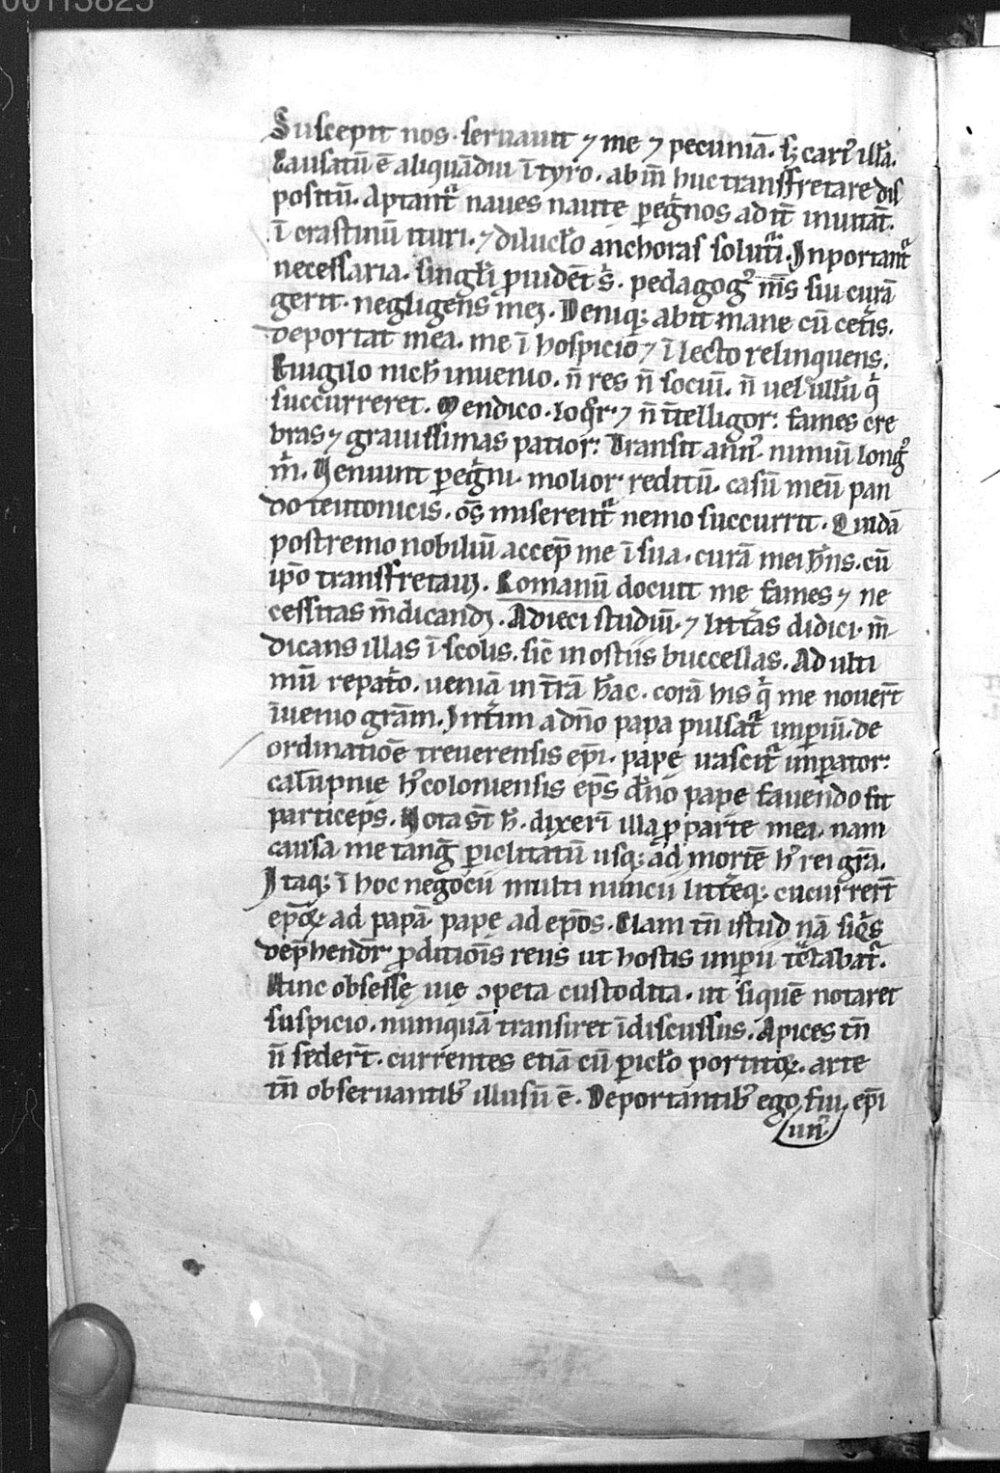 00113825
Suscepit nos. seruauit ⁊ me ⁊ pecuniā. sꝫ cari᷒ illā.
Causatū ē aliquādiu ī tyro. ab īn huc transfretare dis
positū. Aptant᷑ naues naute peg̃nos ad it̄ inuitāt.
ī crastinū ituri. ⁊ diluc̄lo anchoras solut᷑i. Inportant᷑
necessaria. singl̄i ꝓuidēt s̄. pedagog᷒ m̄s sui curā
gerit. negligens mei. Deniqꝫ abiit mane cū cet̄is.
deportat mea. me ī hospicio ⁊ ī lecto relinquens.
Euigilo nich̄ inuenio. n̄ res n̄ sociū. n̄ uel ullū q̄
succurreret. Mendico. loq̄r ⁊ n̄ ītelligor. fames cre
bras ⁊ grauissimas patior. Transit ann᷒ nimiū long᷒
m̄. Veniunt peg̃ni. molior reditū. casū meū pan
do teutonicis. oēs miserent᷑ nemo succurrit. Quidā
postremo nobiliū accep̄ me ī sua. curā mei h̄ns. cū
ip̄o transfretaui. Romanū docuit me fames ⁊ ne
cessitas m̄dicandi. Adieci studiū. ⁊ litt̄as didici. m̄
dicans illas ī scolis. sic̄ in ostiis buccellas. Ad ulti
mū repat̄o. ueniā in t̄rā h̄ac. corā his q̄ me nouer̄t
īuenio grām. Int̄im a dn̄o papa pulsat᷑ imperiū. de
ordinatiōe treuerensis ep̄i. pape nascit᷑ imperator.
calūpnie h᷒ coloniensis ep̄s dn̄o pape fauendo fit
particeps. Nota st̄ h̄. dixeri illa ꝓ parte mea. nam
causa me tanḡ periclitatū usqꝫ ad mortē h᷒ rei grā.
Itaqꝫ ī hoc negocii multi nuncii litteqꝫ cucurrer̄t
ep̄oꝝ ad papā. pape ad ep̄os. Clam tn̄ istud nā siq̄s
dep̄hendēr᷑ ꝓditiōis reus ut hostis imperii tētabat᷑.
Hinc obsesse uie ɔpeta custodita. ut siquē notaret
suspicio. numquā transiret īdiscussus. Apices tn̄
n̄ seder̄t. currentes etiā cū pic̄lo portitoꝝ. arte
tn̄ obseruantib᷒ illusū ē. Deportantib᷒ ego fui. ep̄i
un᷒.